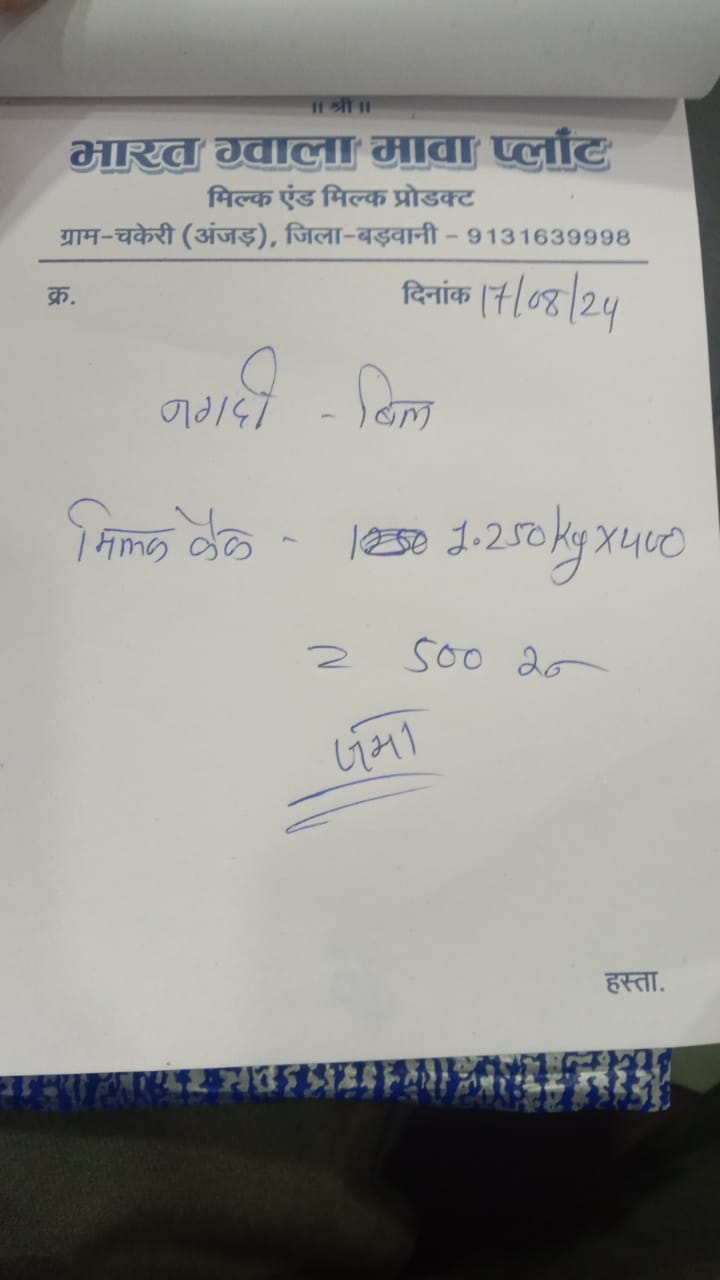 ॥ श्री ॥
भारत ग्वाला मावा प्लाँट
मिल्क एंड मिल्क प्रोडक्ट
ग्राम-चकेरी (अंजड़), जिला-बड़वानी - 9131639998
क्र. दिनांक 17/08/24
नगदी - बिल
मिल्क कैक - 1.250kg×400
= 500 रु
जमा
हस्ता.